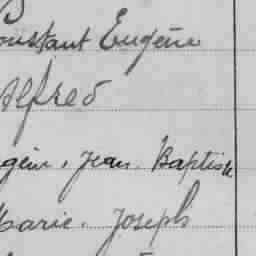 onstant Eugène
Alfred
gène, Jean, Baptiste
Marie, Joseph